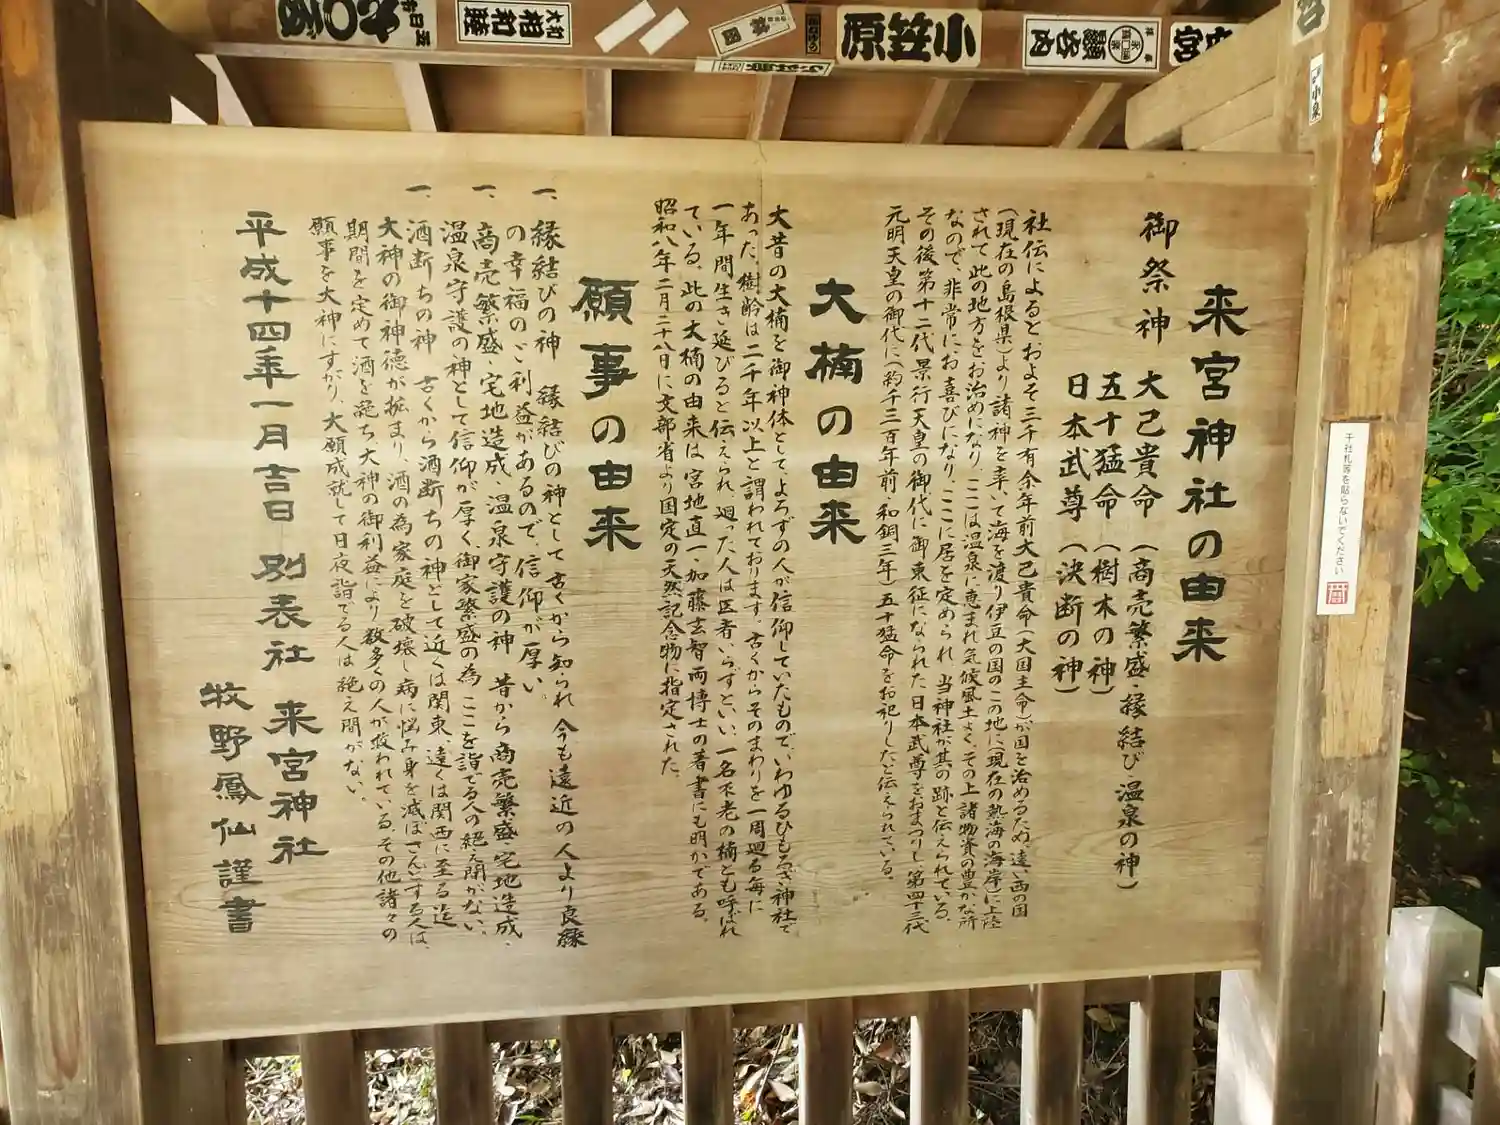 小笠原
小泉
千社札等を貼らないでください
来宮神社の由来
御祭神 大己貴命 (商売繁盛・縁結び・温泉の神)
五十猛命 (樹木の神)
日本武尊 (決断の神)
社伝によると、およそ三千有余年前大己貴命(大国主命)が国を治めるため、遠い西の国
(現在の島根県)より諸神を率いて海を渡り伊豆の国のこの地に(現在の熱海の海岸)に上陸
されて此の地方をお治めになり、ここは温泉に恵まれ気候風土よく、その上諸物資の豊かな所
なので、非常にお喜びになり、ここに居を定められ当神社が其の跡と伝えられている。
その後第十二代景行天皇の御代に御東征になられた日本武尊をおまつりし、第四十三代
元明天皇の御代に(約千三百年前・和銅三年)五十猛命をお祀りしたと伝えられている。
大楠の由来
大昔の大楠を御神体として、よろずの人が信仰していたもので、いわゆるひもろぎ神社で
あった。樹齢は二千年以上と謂われております。古くからそのまわりを一周廻る毎に
一年間生き延びると伝えられ、廻った人は医者いらずといい、一名不老の楠とも呼ばれ
ている。此の大楠の由来は宮地直一、加藤玄智両博士の著書にも明かである。
昭和八年二月二十八日に文部省より国定の天然記念物に指定された。
願事の由来
一、縁結びの神 縁結びの神として古くから知られ 今も遠近の人より良縁
の幸福のご利益があるので、信仰が厚い。
一、商売繁盛、宅地造成、温泉守護の神 昔から商売繁盛・宅地造成・
温泉守護の神として信仰が厚く、御家繁盛の為 ここを詣でる人の絶え間がない。
一、酒断ちの神 古くから酒断ちの神として近くは関東、遠くは関西に至る迄
大神の御神徳が拡まり、酒の為家庭を破壊し病に悩み身を滅ぼさんとする人は、
期間を定めて酒を絶ち、大神の御利益により数多くの人が救われている。その他諸々の
願事を大神にすがり、大願成就して日夜詣でる人は絶え間がない。
平成十四年一月吉日 別表社 来宮神社
牧野鳳仙謹書